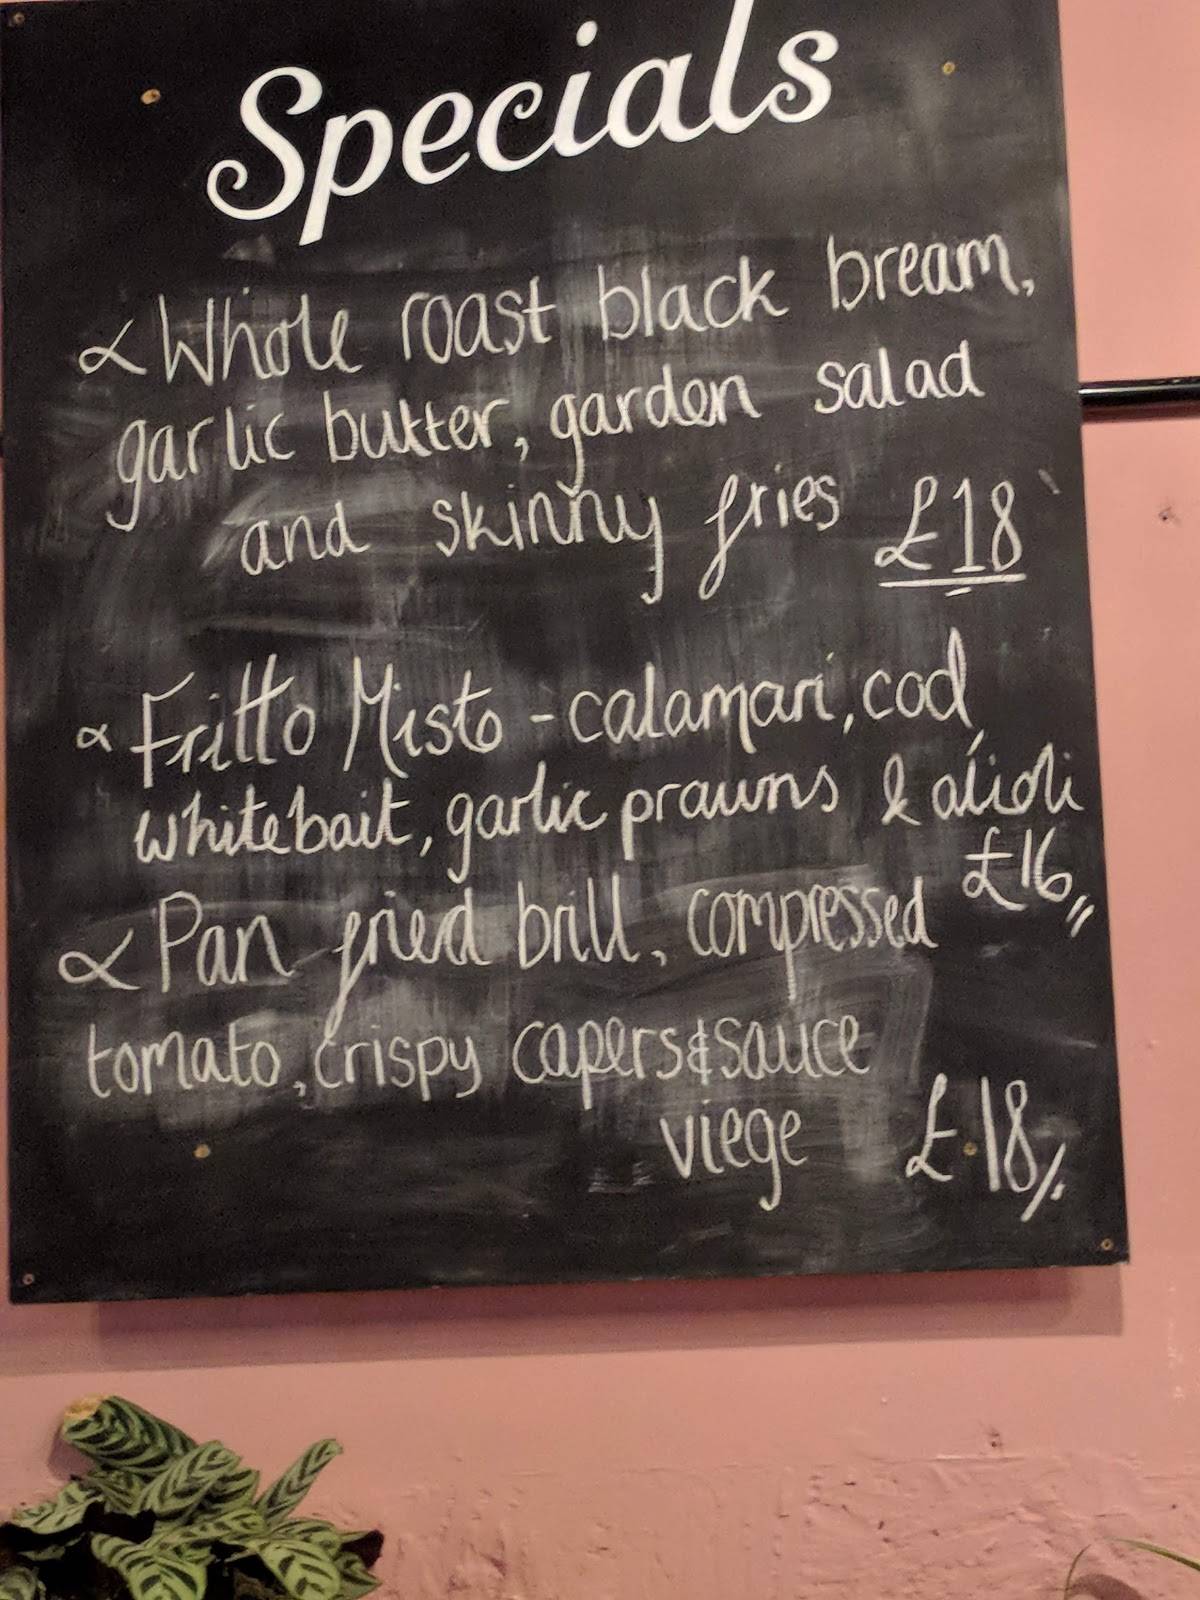 Specials
∝ Whole roast black bream,
garlic butter, garden salad
and skinny fries £18
∝ Fritto Misto - calamari, cod,
whitebait, garlic prawns & alioli
£16
∝ Pan fried brill, compressed
tomato, crispy capers & sauce
viege £18